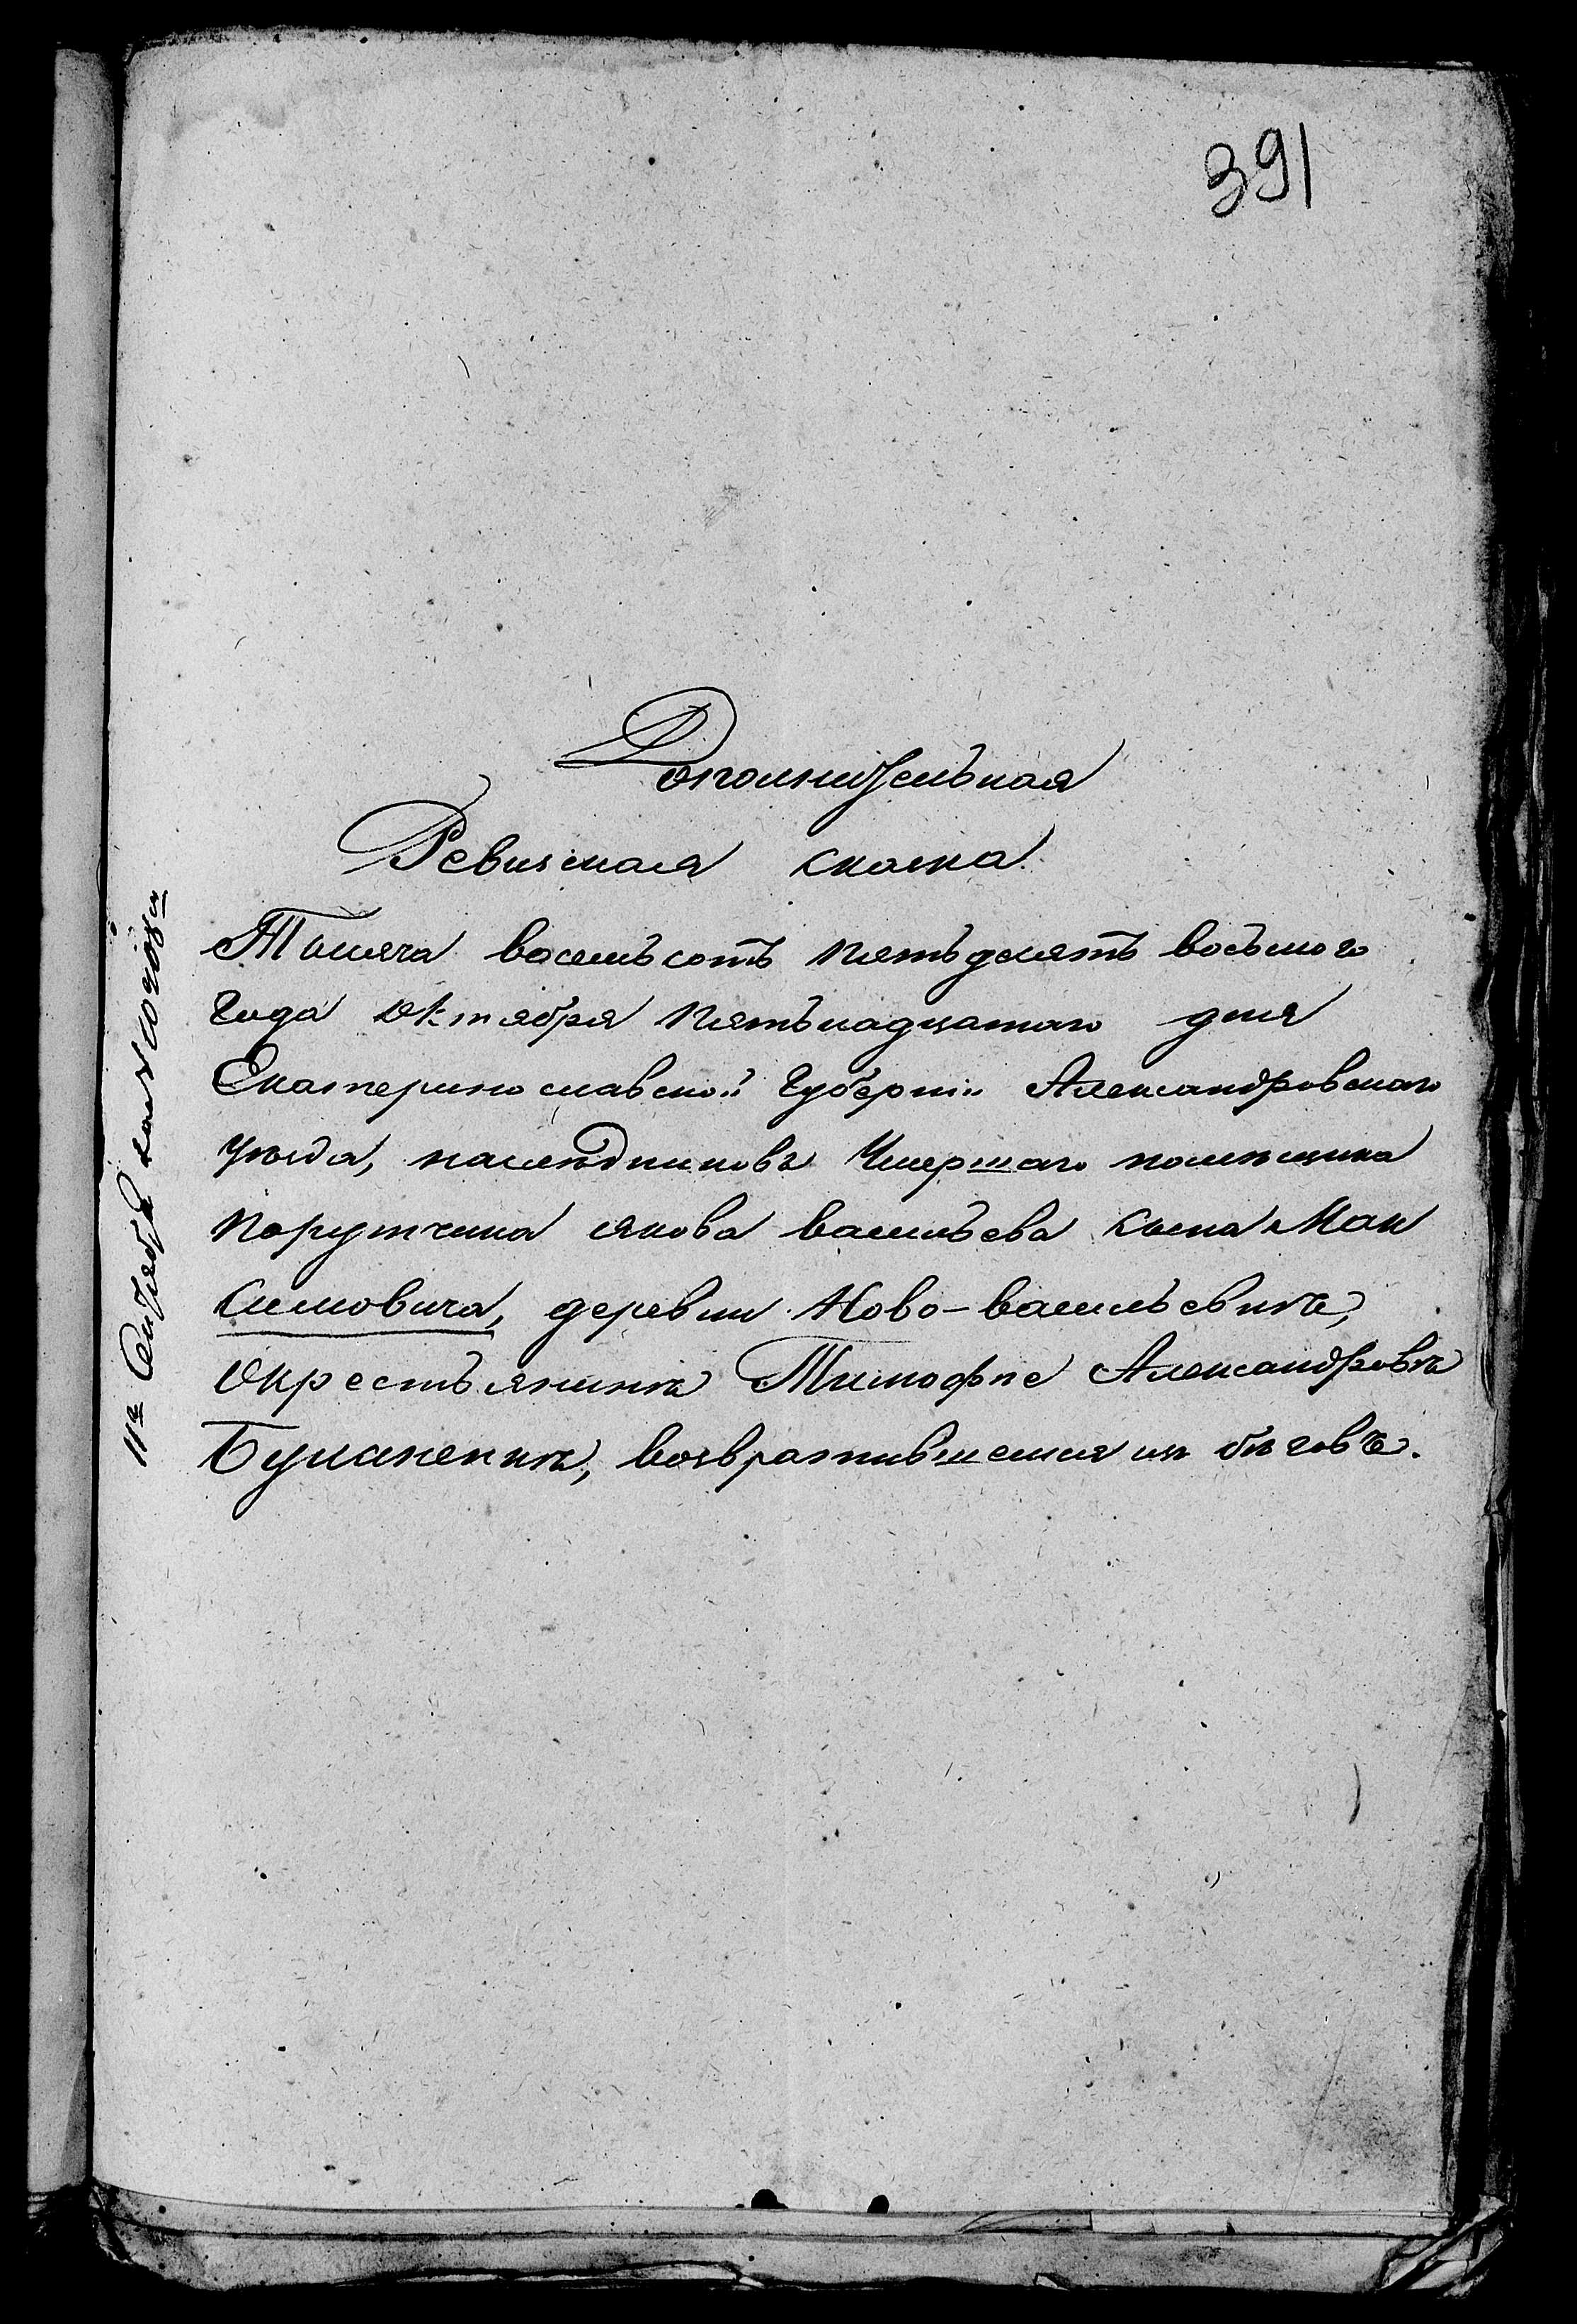 391
Дополнительная
Ревизская сказка
Тысяча восемьсотъ пятьдесятъ восьмого
года Октября пятьнадцатаго дня
Екатеринославской Губерніи Александровскаго
уѣзда, наслѣдниковъ Умершаго помѣщика
Порутчика Якова Васильева сына Мак
симовича, деревни Ново-Васильевки,
О крестьянинѣ Тимофѣе Александровѣ
возвратившемся изъ бѣговъ.
11а Сентября